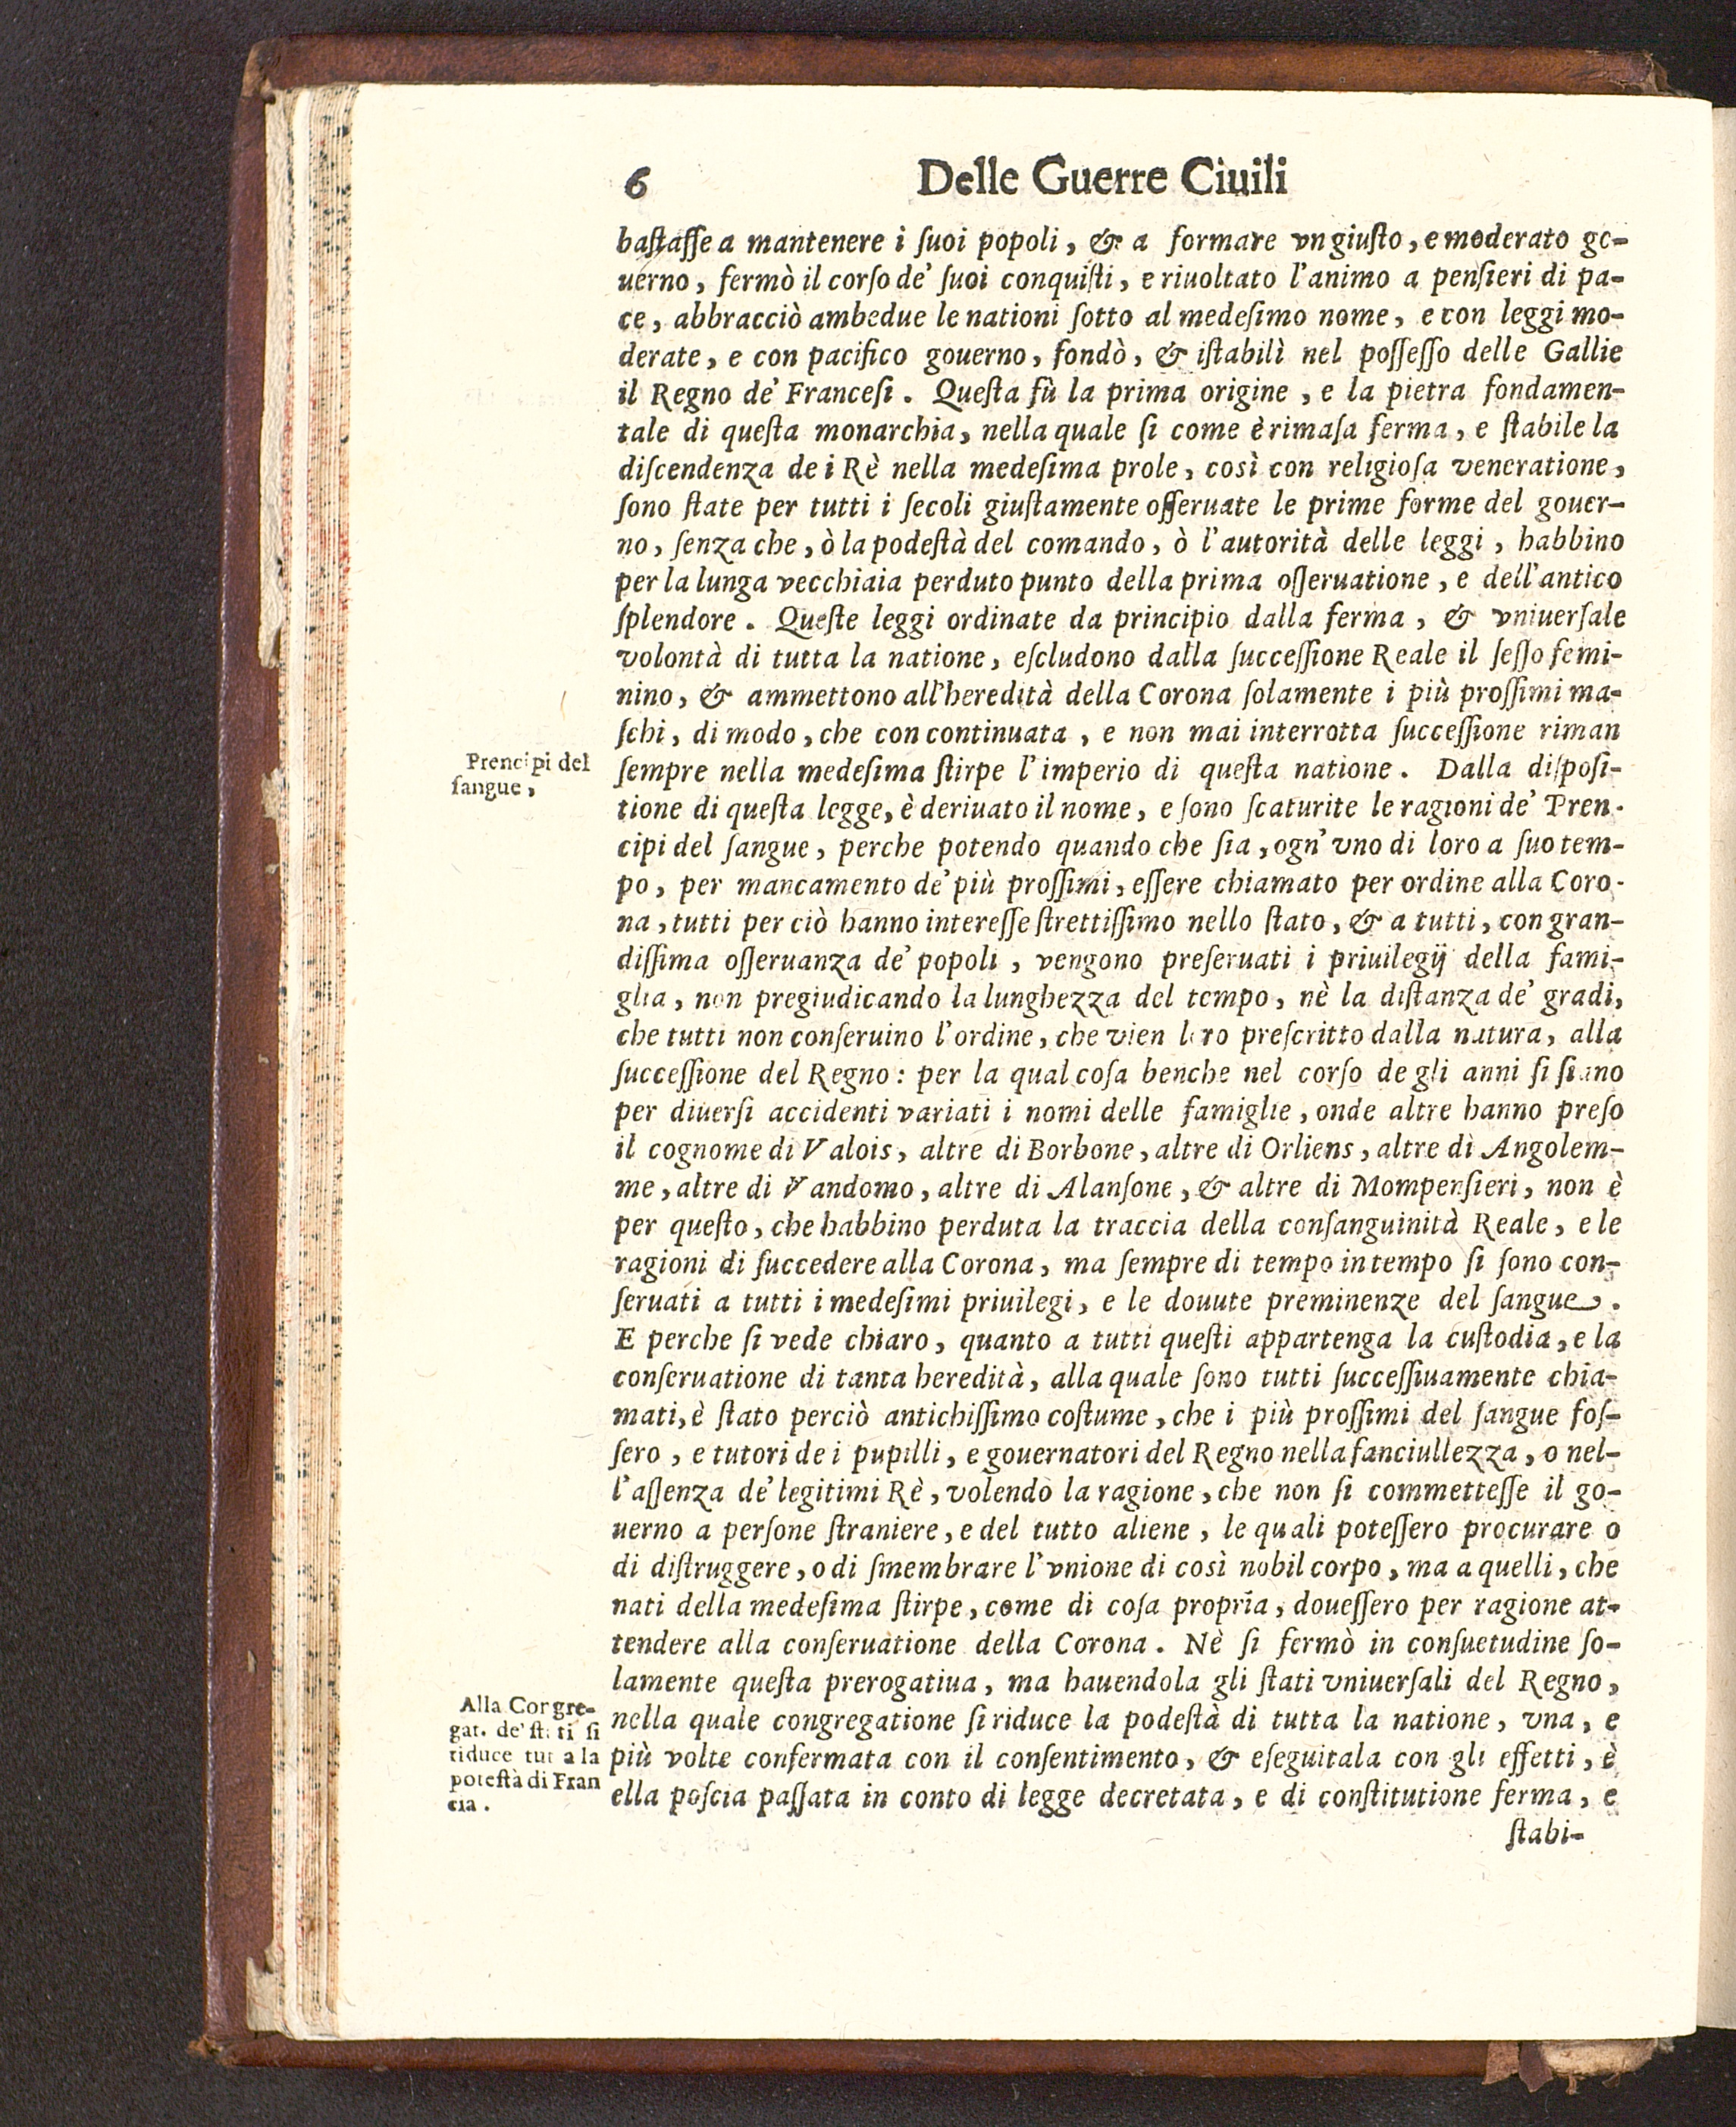 6 Delle Guerre Ciuili
baſtaſſe a mantenere i ſuoi popoli, & a formare vn giuſto, e moderato go-
uerno, fermò il corſo de' ſuoi conquiſti, e riuoltato l'animo a penſieri di pa-
ce, abbracciò ambedue le nationi ſotto al medeſimo nome, e con leggi mo-
derate, e con pacifico gouerno, fondò, & iſtabilì nel poſſeſſo delle Gallie
il Regno de' Franceſi. Queſta fù la prima origine, e la pietra fondamen-
tale di queſta monarchia, nella quale ſi come è rimaſa ferma, e ſtabile la
diſcendenza de i Rè nella medeſima prole, così con religioſa veneratione,
ſono ſtate per tutti i ſecoli giuſtamente oſſeruate le prime forme del gouer-
no, ſenza che, ò la podeſtà del comando, ò l'autorità delle leggi, habbino
per la lunga vecchiaia perduto punto della prima oſſeruatione, e dell'antico
ſplendore. Queſte leggi ordinate da principio dalla ferma, & vniuerſale
volontà di tutta la natione, eſcludono dalla ſucceſſione Reale il ſeſſo femi-
nino, & ammettono all'heredità della Corona ſolamente i più proſſimi ma-
ſchi, di modo, che con continuata, e non mai interrotta ſucceſſione riman
Prencipi del
ſangue,
ſempre nella medeſima ſtirpe l'imperio di queſta natione. Dalla diſpoſi-
tione di queſta legge, è deriuato il nome, e ſono ſcaturite le ragioni de' Pren-
cipi del ſangue, perche potendo quando che ſia, ogn'vno di loro a ſuo tem-
po, per mancamento de' più proſſimi, eſſere chiamato per ordine alla Coro-
na, tutti per ciò hanno intereſſe ſtrettiſſimo nello ſtato, & a tutti, con gran-
diſſima oſſeruanza de' popoli, vengono preſeruati i priuilegij della fami-
glia, non pregiudicando la lunghezza del tempo, nè la diſtanza de' gradi,
che tutti non conſeruino l'ordine, che vien loro preſcritto dalla natura, alla
ſucceſſione del Regno: per la qual coſa benche nel corſo de gli anni ſi ſiano
per diuerſi accidenti variati i nomi delle famiglie, onde altre hanno preſo
il cognome di Valois, altre di Borbone, altre di Orliens, altre di Angolem-
me, altre di Vandomo, altre di Alanſone, & altre di Mompenſieri, non è
per queſto, che habbino perduta la traccia della conſanguinità Reale, e le
ragioni di ſuccedere alla Corona, ma ſempre di tempo in tempo ſi ſono con-
ſeruati a tutti i medeſimi priuilegi, e le douute preminenze del ſangue.
E perche ſi vede chiaro, quanto a tutti queſti appartenga la cuſtodia, e la
conſeruatione di tanta heredità, alla quale ſono tutti ſucceſſiuamente chia-
mati, è ſtato perciò antichiſſimo coſtume, che i più proſſimi del ſangue foſ-
ſero, e tutori de i pupilli, e gouernatori del Regno nella fanciullezza, o nel-
l'aſſenza de' legitimi Rè, volendo la ragione, che non ſi commetteſſe il go-
uerno a perſone ſtraniere, e del tutto aliene, le quali poteſſero procurare o
di diſtruggere, o di ſmembrare l'vnione di così nobil corpo, ma a quelli, che
nati della medeſima ſtirpe, come di coſa propria, doueſſero per ragione at-
tendere alla conſeruatione della Corona. Nè ſi fermò in conſuetudine ſo-
lamente queſta prerogatiua, ma hauendola gli ſtati vniuerſali del Regno,
Alla Congre-
gat. de' ſtati ſi
riduce tut a la
poteſtà di Fran
cia.
nella quale congregatione ſi riduce la podeſtà di tutta la natione, vna, e
più volte confermata con il conſentimento, & eſeguitala con gli effetti, è
ella poſcia paſſata in conto di legge decretata, e di conſtitutione ferma, e
ſtabi-